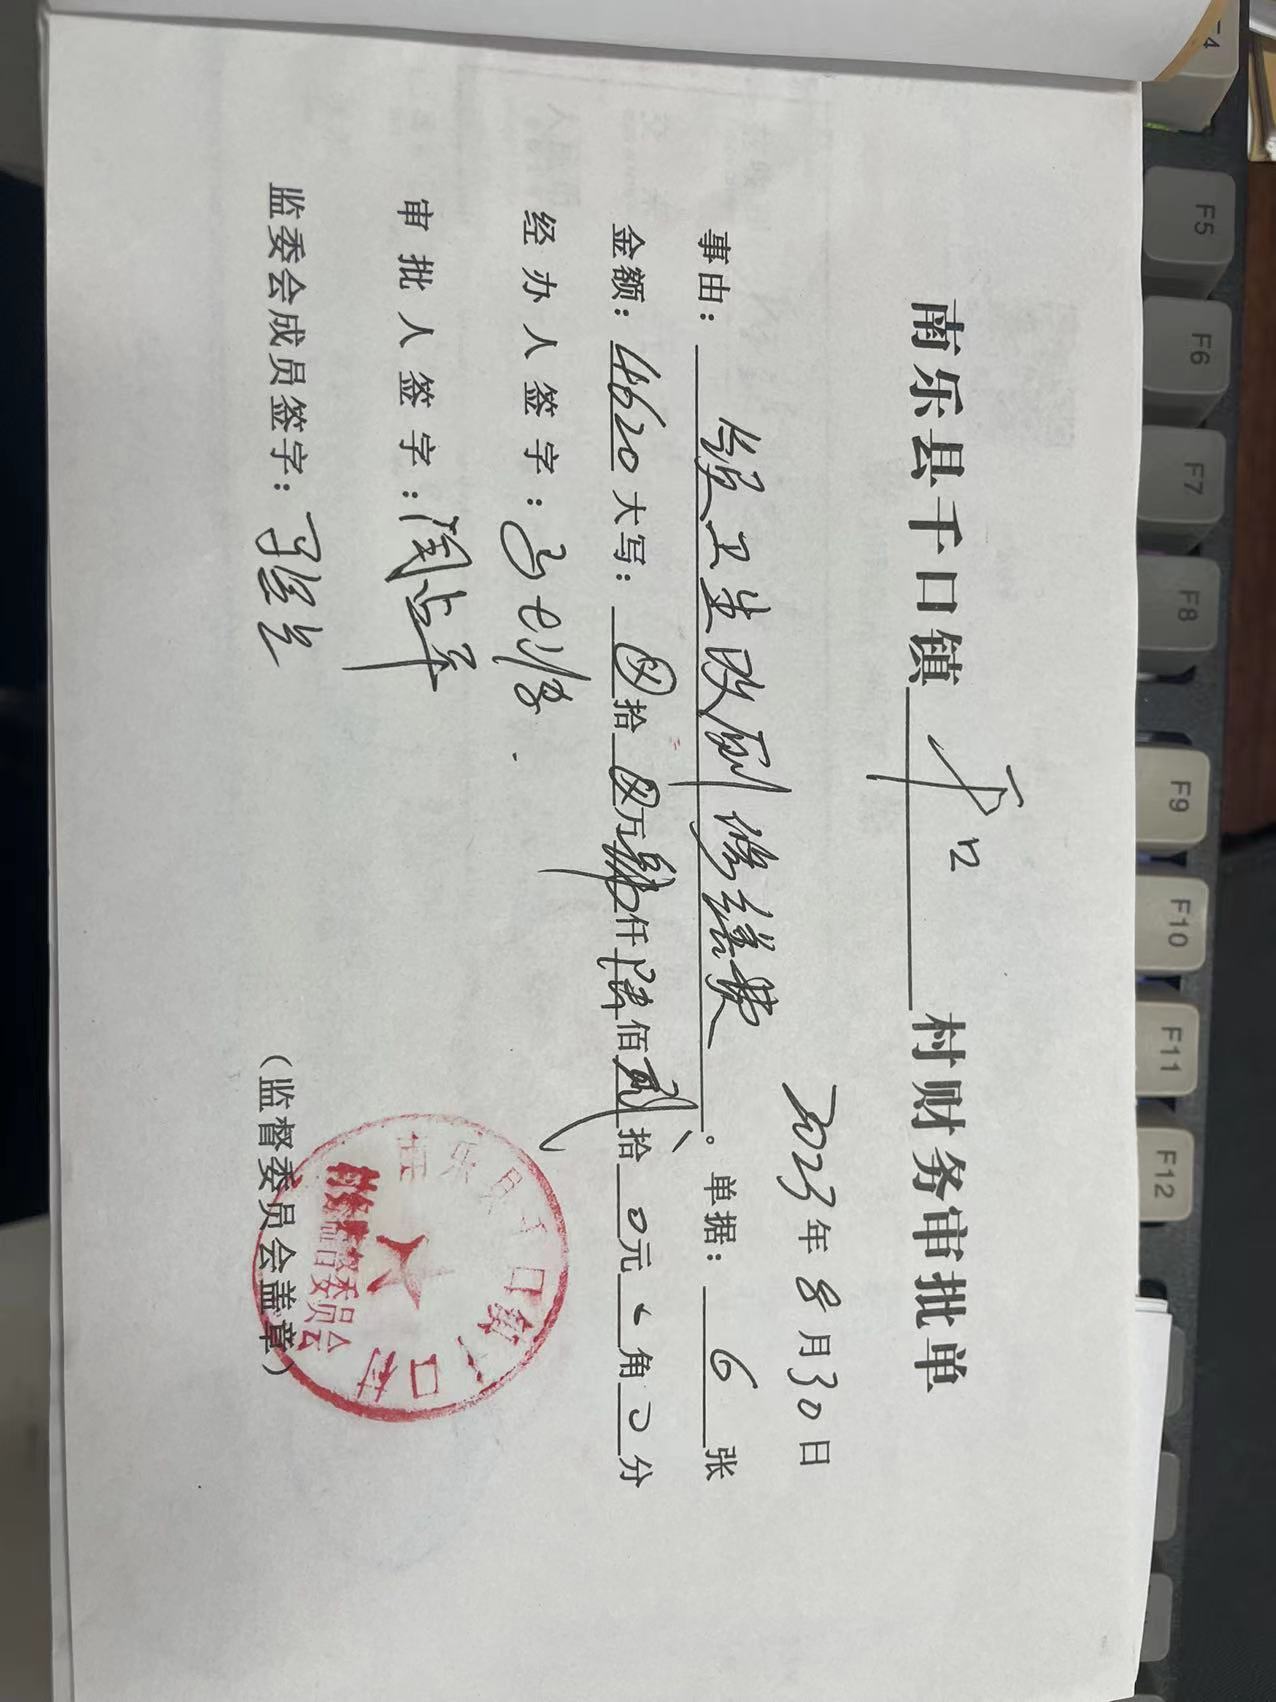 南乐县千口镇 千口 村财务审批单
2023年8月30日
事由: 卫生改厕修缮费。单据: 6 张
金额: 4620 大写: ⊗拾⊗万肆仟陆佰贰拾0元0角0分
经办人签字:
审批人签字:
监委会成员签字:
(监督委员会盖章)
南乐县千口镇千口村
村务监督委员会
F5
F6
F7
F8
F9
F10
F11
F12